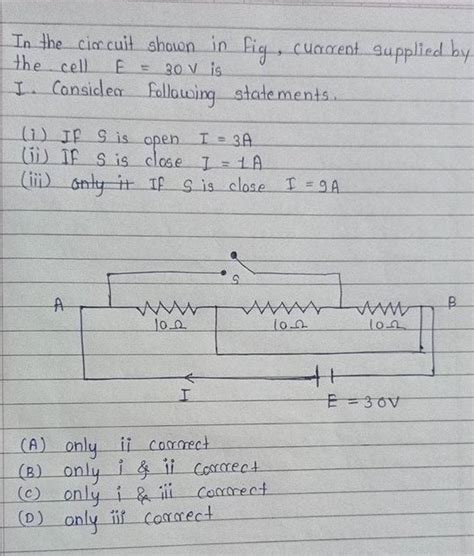 In the circuit shown in Fig, current supplied by
the cell E = 30 V is
I. Consider Following statements.
(i) If S is open I = 3A
(ii) If S is close I = 1A
(iii) only it If S is close I = 9A
S
A
B
10Ω
10Ω
10Ω
I
E = 30V
(A) only ii correct
(B) only i & ii correct
(C) only i & iii correct
(D) only iii correct